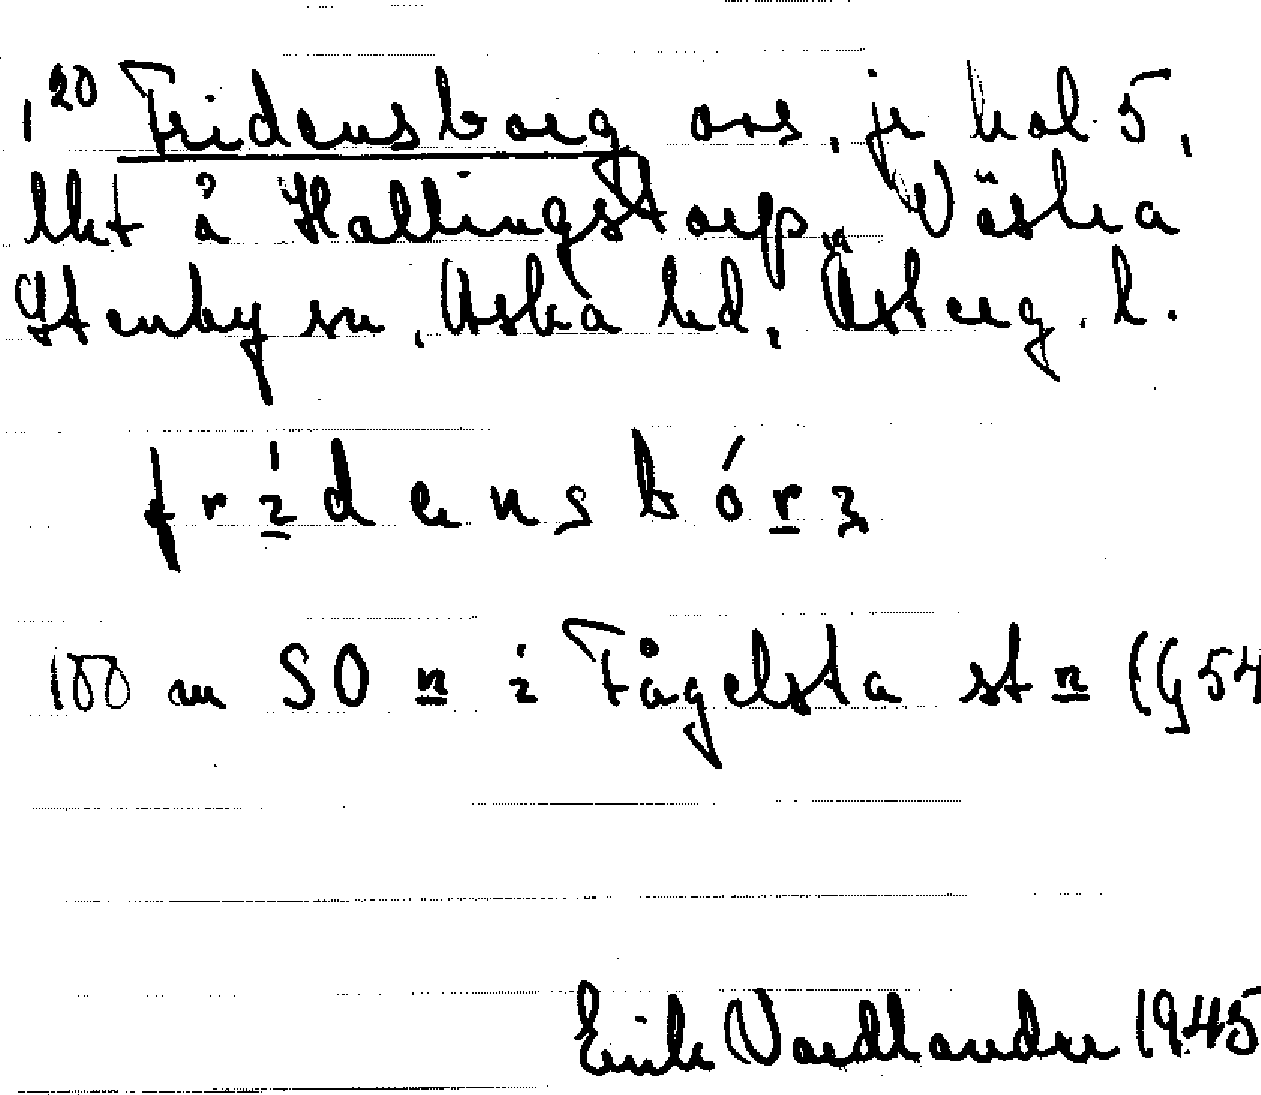 1²⁰ Fridensborg avs, jr kal 5,
lht å Hallingstorp, Västra
Stenby sn, Aska hd, Österg. l.
frídensbórg
100 m SO n i Fågelsta stn (G54
Erik Vardlander 1945